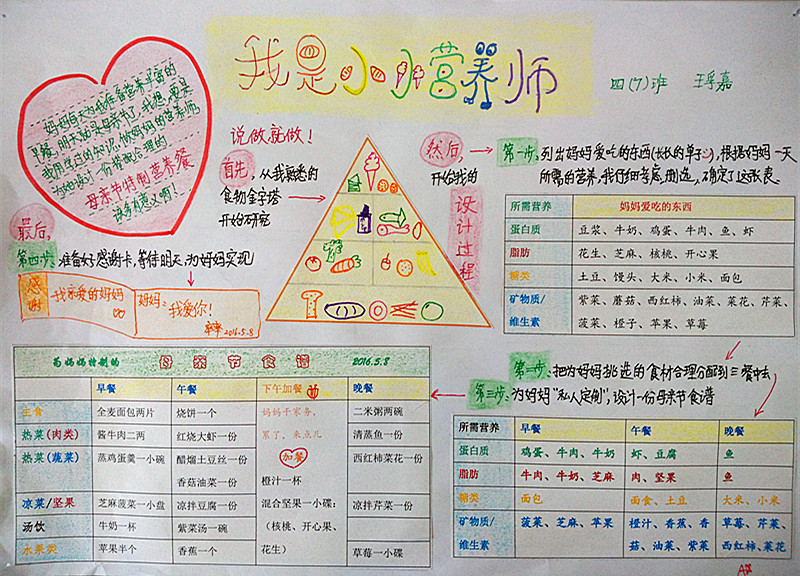 我是小小营养师
四(7)班 王孚嘉
妈妈每天为我准备营养丰富的
早餐,明天就是母亲节了,我想,要是
我用学过的知识,做妈妈的营养师,
为她设计一份搭配合理的
母亲节特制营养餐
该多有意义啊!
说做就做!
首先,从我熟悉的
食物金字塔
开始研究
然后,
开始我的
设计过程
第一步:列出妈妈爱吃的东西(长长的单子),根据妈妈一天
所需的营养,我仔细考虑、删选,确定了这张表
所需营养 妈妈爱吃的东西
蛋白质 豆浆、牛奶、鸡蛋、牛肉、鱼、虾
脂肪 花生、芝麻、核桃、开心果
糖类 土豆、馒头、大米、小米、面包
矿物质/ 紫菜、蘑菇、西红柿、油菜、菜花、芹菜、
维生素 菠菜、橙子、苹果、草莓
第二步:把为妈妈挑选的食材合理分配到三餐中去
第三步:为妈妈"私人定制",设计一份母亲节食谱
所需营养 早餐 午餐 晚餐
蛋白质 鸡蛋、牛肉、牛奶 虾、豆腐 鱼
脂肪 牛肉、牛奶、芝麻 肉、坚果 鱼
糖类 面包 面食、土豆 大米、小米
矿物质/ 菠菜、芝麻、苹果 橙汁、香蕉、香 草莓、芹菜、
维生素 菇、油菜、紫菜 西红柿、菜花
最后,
第四步:准备好感谢卡,等待明天为妈妈实现
感谢
我亲爱的妈妈
妈妈:
我爱你!
2016.5.8
为妈妈特制的 母亲节食谱 2016.5.8
早餐 午餐 下午加餐 晚餐
主食 全麦面包两片 烧饼一个 妈妈干家务, 二米粥两碗
热菜(肉类) 酱牛肉二两 红烧大虾一份 累了,来点儿 清蒸鱼一份
热菜(蔬菜) 蒸鸡蛋羹一小碗 醋熘土豆丝一份 加餐 西红柿菜花一份
香菇油菜一份 橙汁一杯
凉菜/坚果 芝麻菠菜一小盘 凉拌豆腐一份 混合坚果一小碟: 凉拌芹菜一份
汤饮 牛奶一杯 紫菜汤一碗 (核桃、开心果、
水果类 苹果半个 香蕉一个 花生) 草莓一小碟